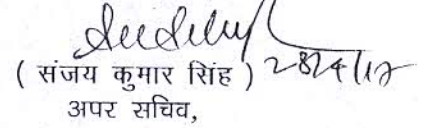 ( संजय कुमार सिंह ) 28/4/17
अपर सचिव,